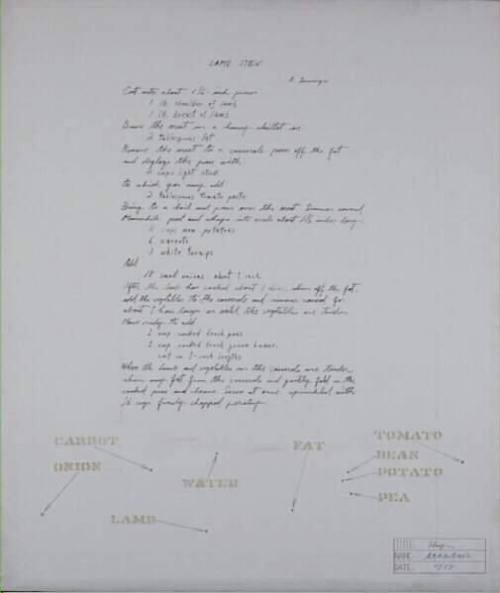 LAMB STEW
Cut into about 1½ inch pieces
1 lb. shoulder of lamb
1 lb. breast of lamb
Brown the meat in a heavy skillet in
2 tablespoons fat
Remove the meat to a casserole pour off the fat
and deglaze the pan with
cups light stock
to which you may add
2 tablespoons tomato paste
Bring to a boil and pour over the meat Simmer covered
Meanwhile peel and shape into ovals about 1½ inches long
cups new potatoes
6 carrots
3 white turnips
Add
18 small onions about 1 inch
After the lamb has cooked about 1 hour, skim off the fat,
add the vegetables to the casserole and simmer covered for
about 1 hour longer or until the vegetables are tender
Have ready to add
1 cup cooked fresh peas
1 cup cooked fresh green beans,
cut in 1-inch lengths
When the lamb and vegetables in the casserole are tender
skim any fat from the casserole and quickly fold in the
cooked peas and beans Serve at once sprinkled with
finely chopped parsley
CARROT
FAT
TOMATO
ONION
BEAN
WATER
POTATO
PEA
LAMB
DATE